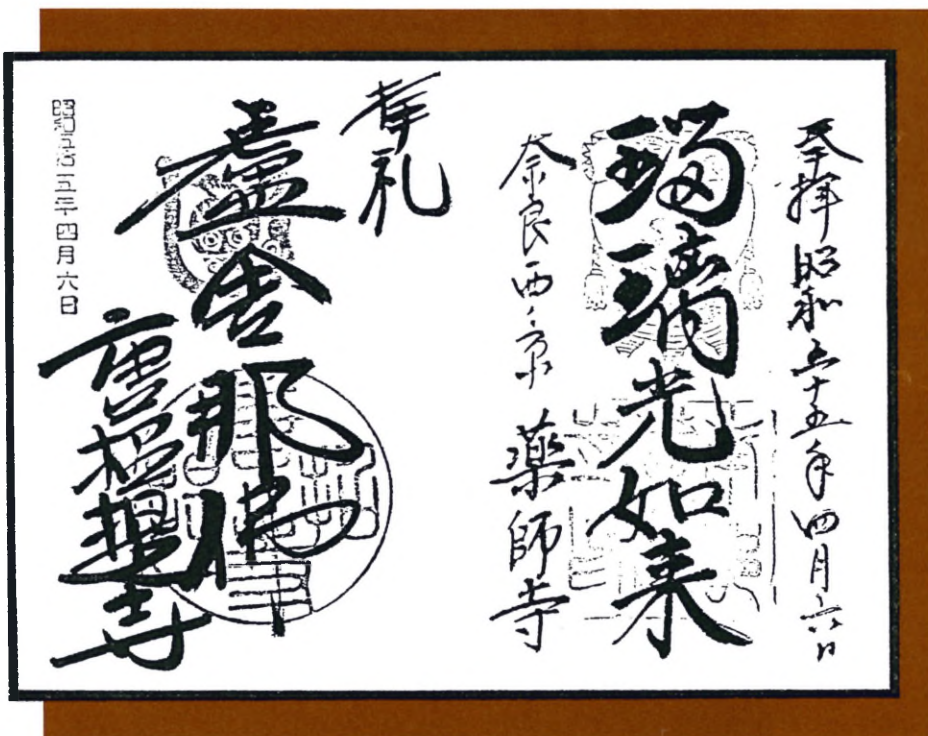 奉拝 昭和五十五年四月六日
瑠璃光如来
奈良西ノ京 薬師寺
奉礼
盧舎那佛
唐招提寺
昭和五五年四月六日